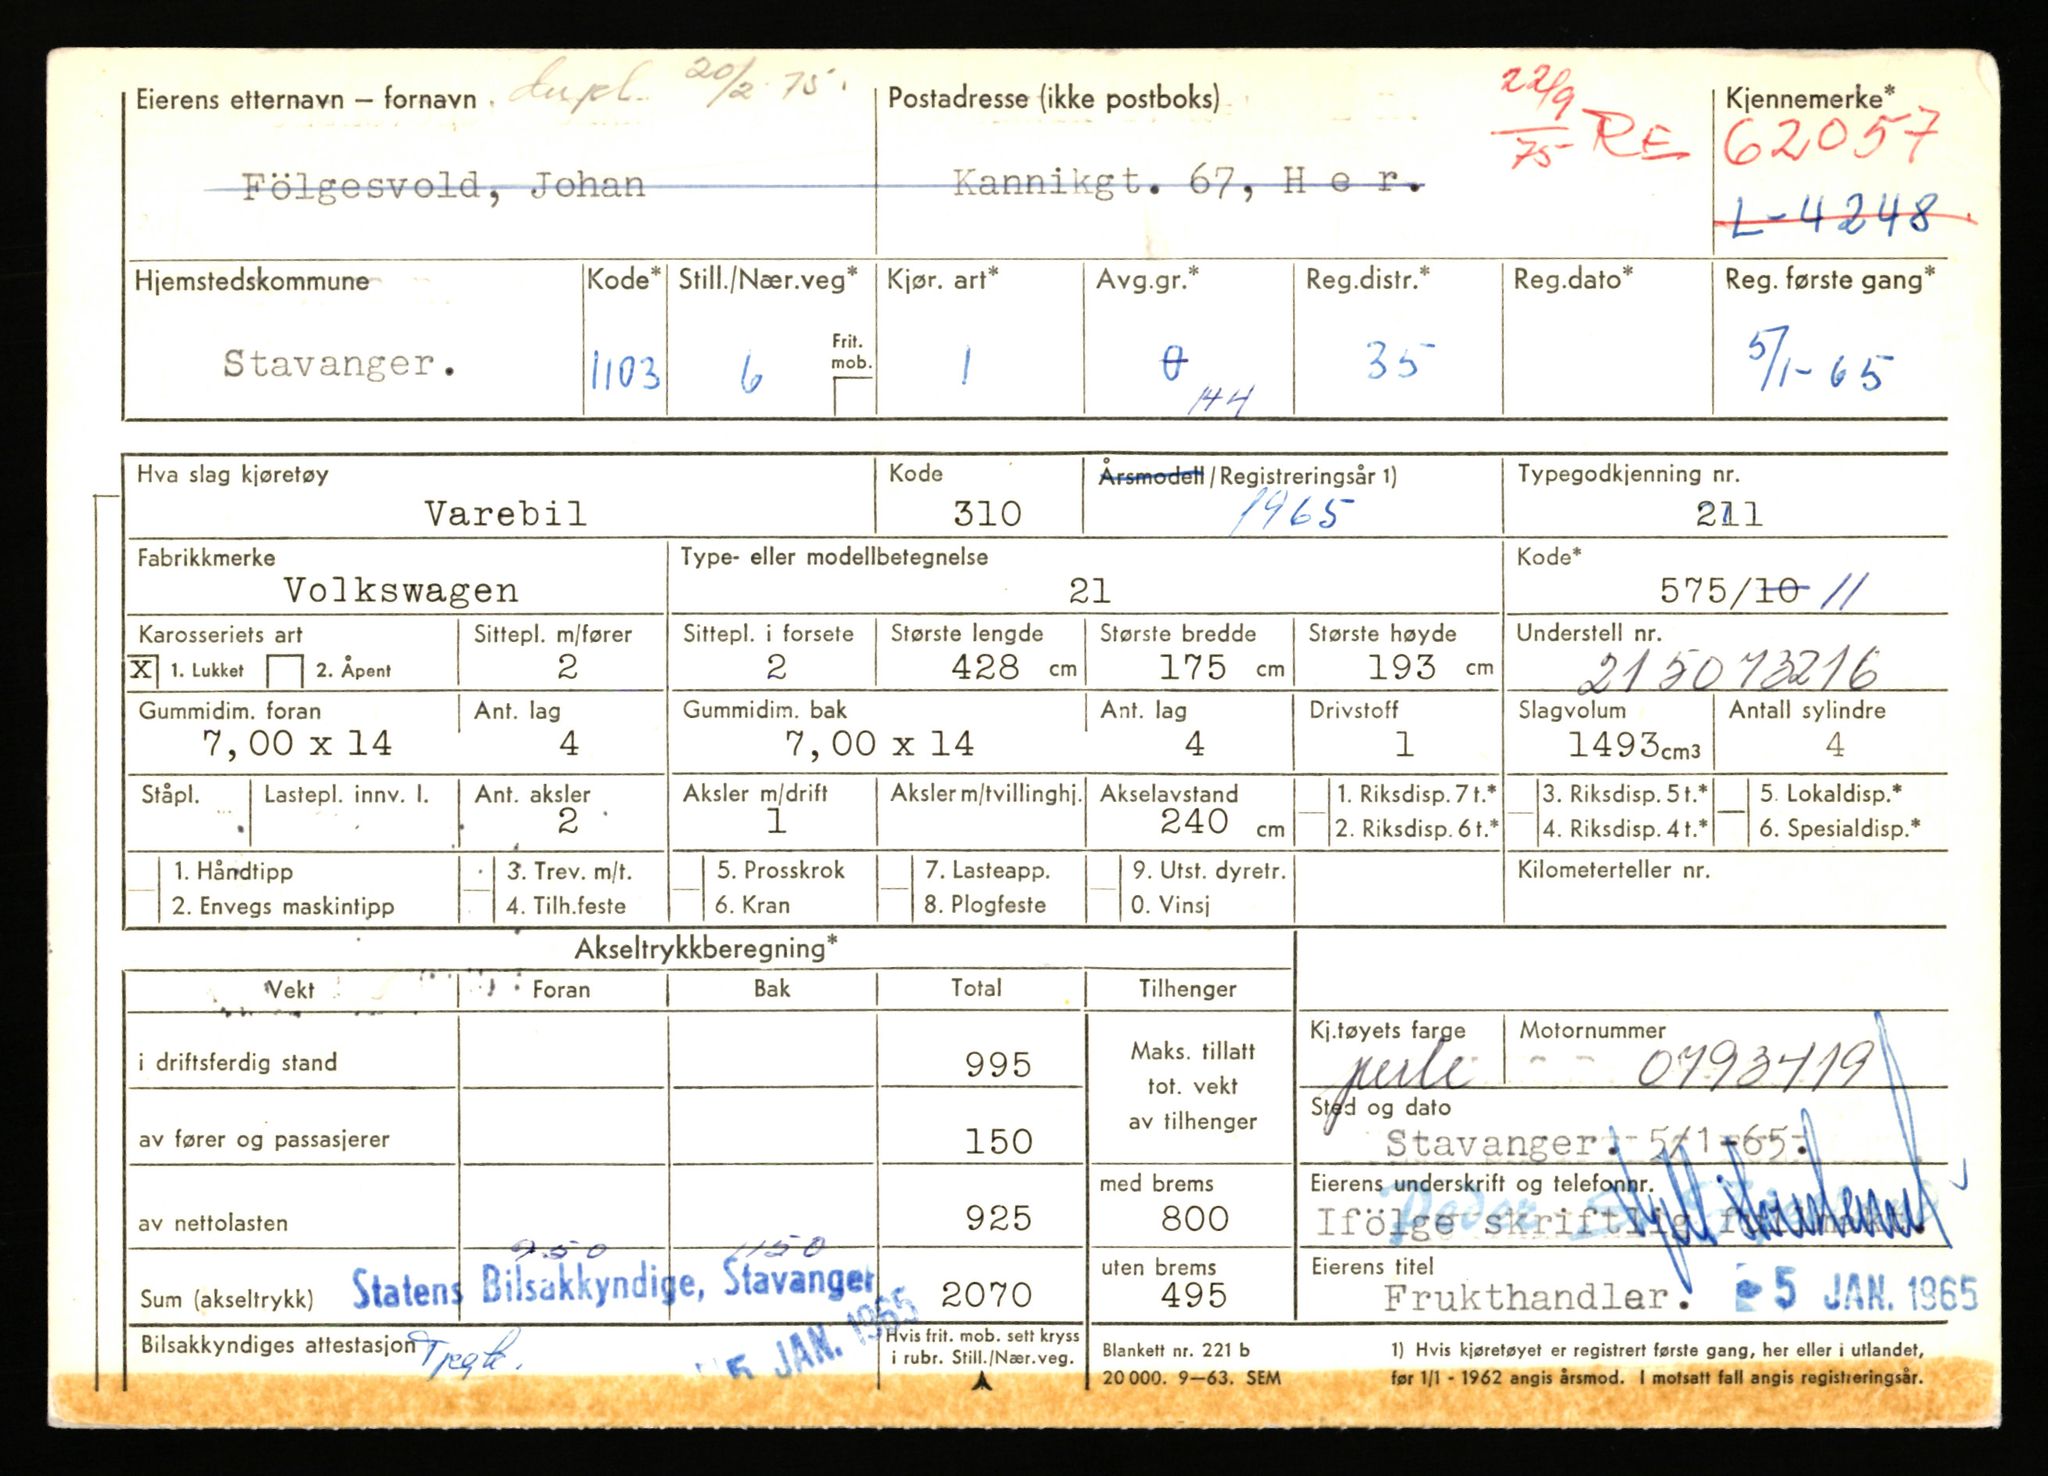 dupl. 20/2 75.
Eierens etternavn – fornavn
Postadresse (ikke postboks)
22/9 75 RE
Kjennemerke*
62057
Fölgesvold, Johan
Kannikgt. 67, H e r.
L-4248
Hjemstedskommune Kode* Still./Nær.veg* Kjør. art* Avg.gr.* Reg.distr.* Reg.dato* Reg. første gang*
Frit. mob.
Stavanger. 1103 6 1 0 35 5/1-65
144
Hva slag kjøretøy Kode Årsmodell/Registreringsår 1) Typegodkjenning nr.
Varebil 310 1965 211
Fabrikkmerke Type- eller modellbetegnelse Kode*
Volkswagen 21 575/10 11
Karosseriets art Sittepl. m/fører Sittepl. i forsete Største lengde Største bredde Største høyde Understell nr.
X 1. Lukket 2. Åpent 2 2 428 cm 175 cm 193 cm 215073216
Gummidim. foran Ant. lag Gummidim. bak Ant. lag Drivstoff Slagvolum Antall sylindre
7,00 x 14 4 7,00 x 14 4 1 1493 cm3 4
Ståpl. Lastepl. innv. l. Ant. aksler Aksler m/drift Aksler m/tvillinghj. Akselavstand 1. Riksdisp. 7 t.* 3. Riksdisp. 5 t.* 5. Lokaldisp.*
2 1 240 cm 2. Riksdisp. 6 t.* 4. Riksdisp. 4 t.* 6. Spesialdisp.*
1. Håndtipp 3. Trev. m/t. 5. Prosskrok 7. Lasteapp. 9. Utst. dyretr. Kilometerteller nr.
2. Envegs maskintipp 4. Tilh.feste 6. Kran 8. Plogfeste 0. Vinsj
Akseltrykkberegning*
Vekt Foran Bak Total Tilhenger
Kj.tøyets farge Motornummer
i driftsferdig stand 995 Maks. tillatt tot. vekt av tilhenger
perle 0793419
Sted og dato
av fører og passasjerer 150
Stavanger. 5/1-65.
med brems Eierens underskrift og telefonnr.
av nettolasten 925 800 Ifölge skriftlig
950 1150
uten brems Eierens titel
Sum (akseltrykk) 2070 495 Frukthandler.
Statens Bilsakkyndige, Stavanger
5 JAN. 1965
5 JAN. 1965
Bilsakkyndiges attestasjon
Hvis frit. mob. sett kryss i rubr. Still./Nær.veg.
Blankett nr. 221 b
20 000. 9–63. SEM
1) Hvis kjøretøyet er registrert første gang, her eller i utlandet,
før 1/1 - 1962 angis årsmod. I motsatt fall angis registreringsår.